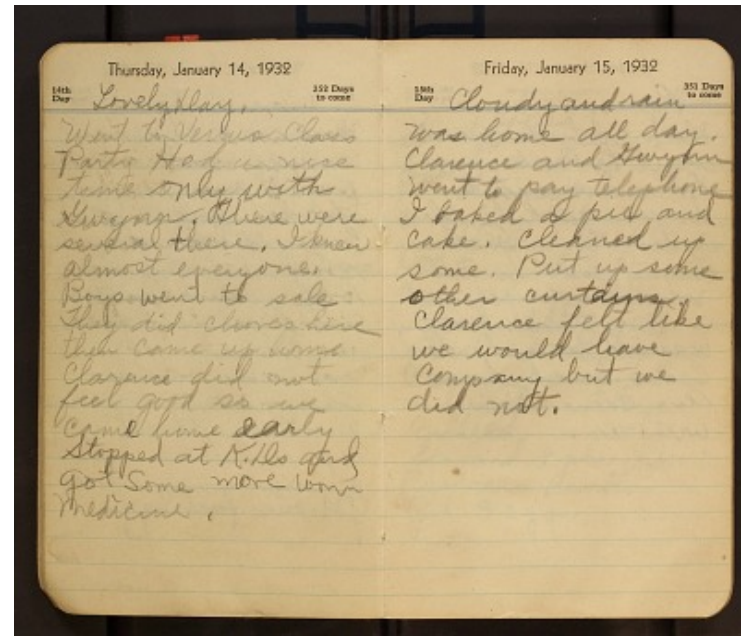 Thursday, January 14, 1932
14th Day
352 Days to come
Lovely Day.
Went to Class
Party Had a nice
time only with
Gwynn. There were
several there. I knew
almost everyone.
Boys went to sale
They did chores here
then came up home
Clarence did not
feel good so we
came home early
Stopped at and
got some more worm
medicine.
Friday, January 15, 1932
15th Day
351 Days to come
Cloudy and rain
was home all day.
Clarence and Gwynn
went to pay telephone
I baked a pie and
cake. Cleaned up
some. Put up some
other curtains.
Clarence felt like
we would have
company but we
did not.